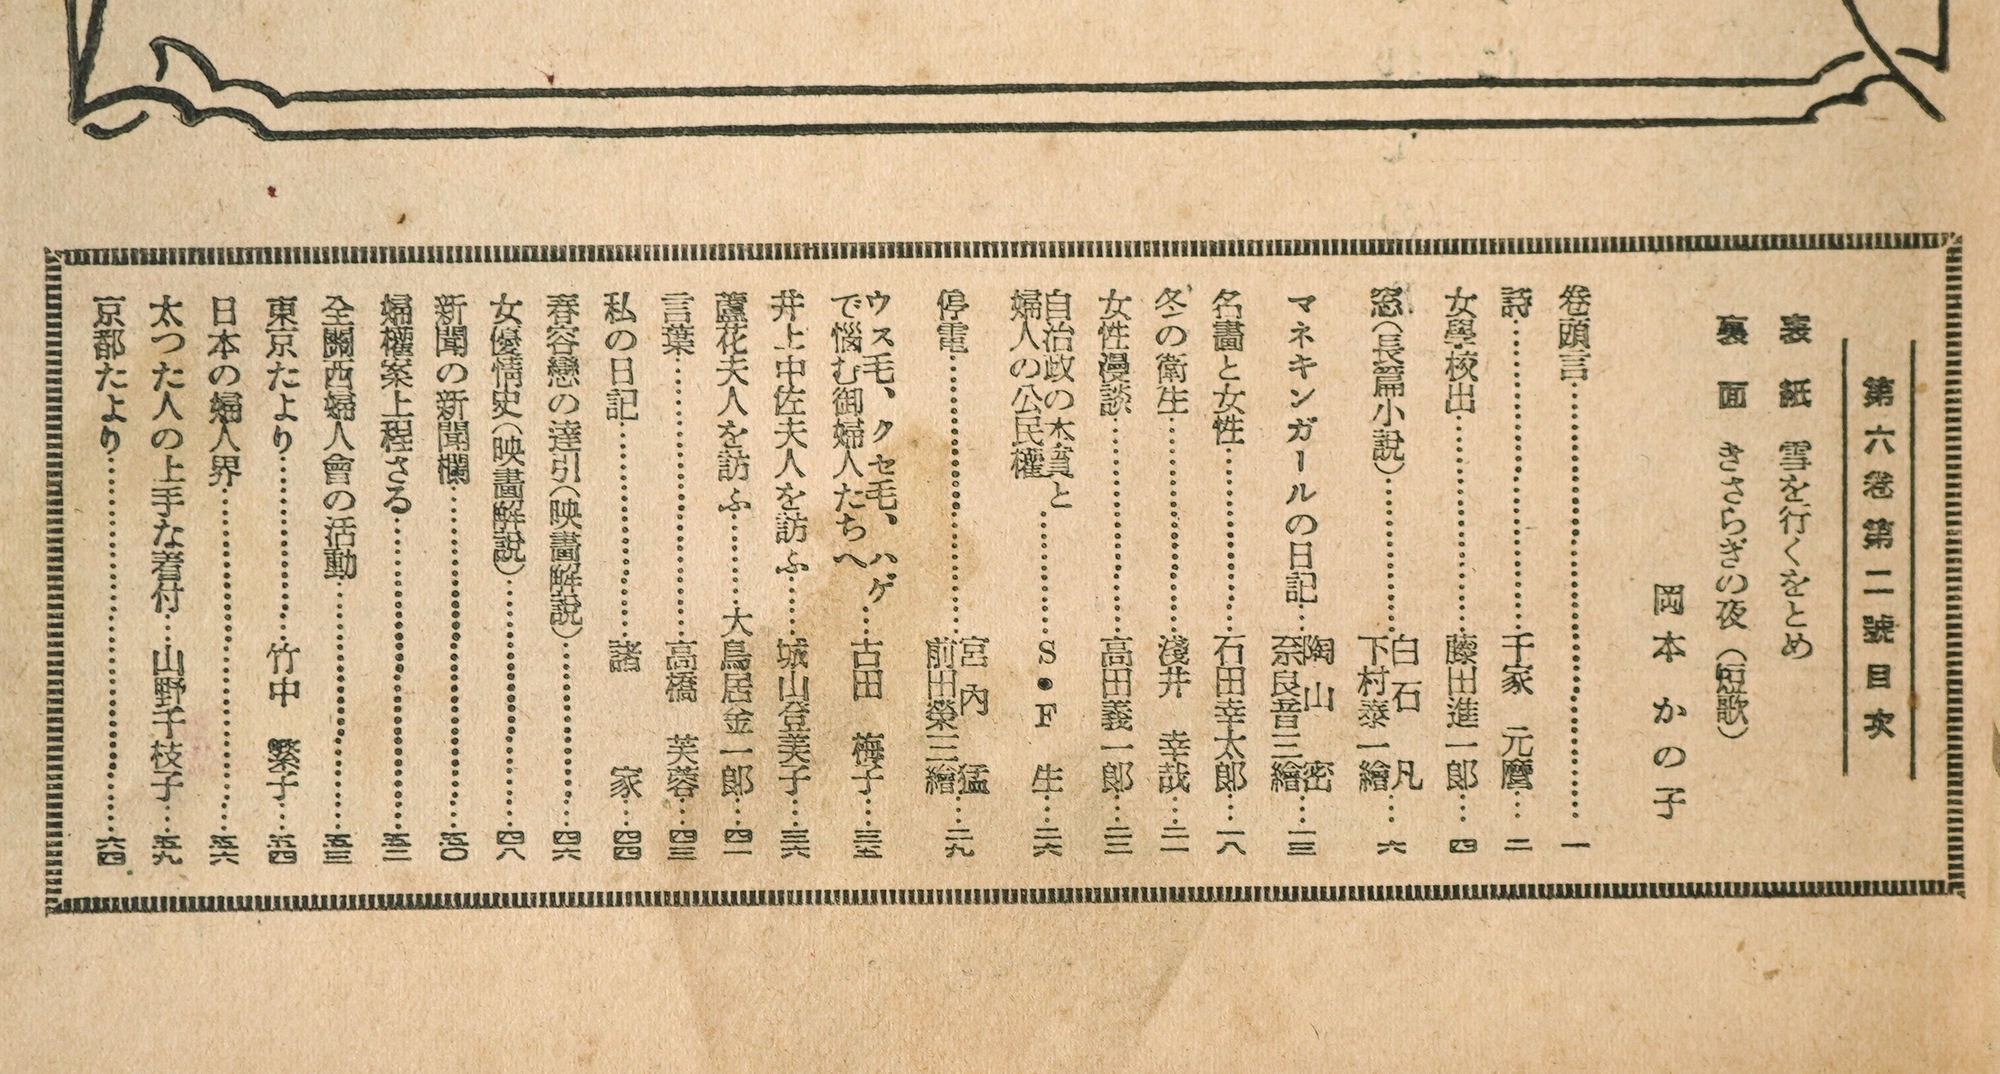 第六卷第二號目次
表紙 雪を行くをとめ
裏面 きさらぎの夜(短歌)
岡本かの子
卷頭言…一
詩…千家元麿…二
女學校出…藤田進一郎…四
窓(長篇小説)…白石凡 下村泰一繪…六
マネキンガールの日記…陶山密 奈良音三繪…一三
名畫と女性…石田幸太郎…一八
冬の衛生…淺井幸哉…二一
女性漫談…高田義一郎…二三
自治政の本質と
婦人の公民權…S・F生…二六
停電…宮内猛 前田榮三繪…二九
ウス毛、クセ毛、ハゲ
で惱む御婦人たちへ…古田梅子…三五
井上中佐夫人を訪ふ…城山登美子…三六
蘆花夫人を訪ふ…大鳥居金一郎…四一
言葉…高橋芙蓉…四三
私の日記…諸家…四四
春容戀の達引(映畫解説)…四六
女優情史(映畫解説)…四八
新聞の新聞欄…五〇
婦權案上程さる…五二
全關西婦人會の活動…五三
東京たより…竹中繁子…五四
日本の婦人界…五六
太つた人の上手な着付…山野千枝子…五九
京都たより…六四